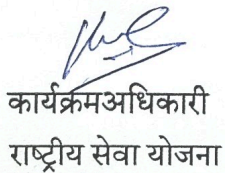 कार्यक्रमअधिकारी
राष्ट्रीय सेवा योजना